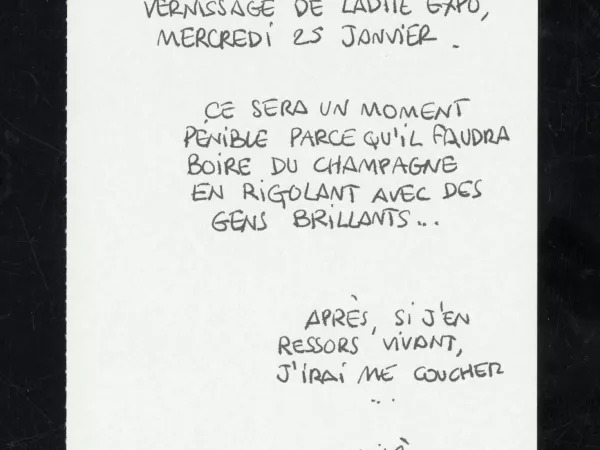 VERNISSAGE DE LADITE EXPO,
MERCREDI 25 JANVIER.
CE SERA UN MOMENT
PÉNIBLE PARCE QU'IL FAUDRA
BOIRE DU CHAMPAGNE
EN RIGOLANT AVEC DES
GENS BRILLANTS...
APRÈS, SI J'EN
RESSORS VIVANT,
J'IRAI ME COUCHER
...